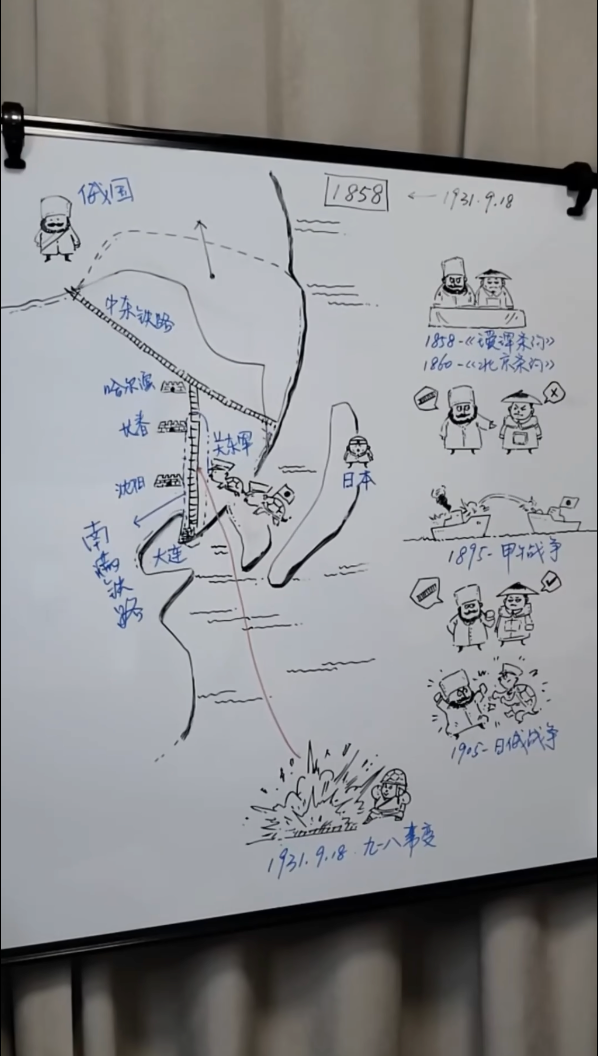 俄国
1858 ← 1931.9.18
中东铁路
哈尔滨
长春
沈阳
大连
南满铁路
关东军
日本
1858-《瑷珲条约》
1860-《北京条约》
1895-甲午战争
1905-日俄战争
1931.9.18.九一八事变